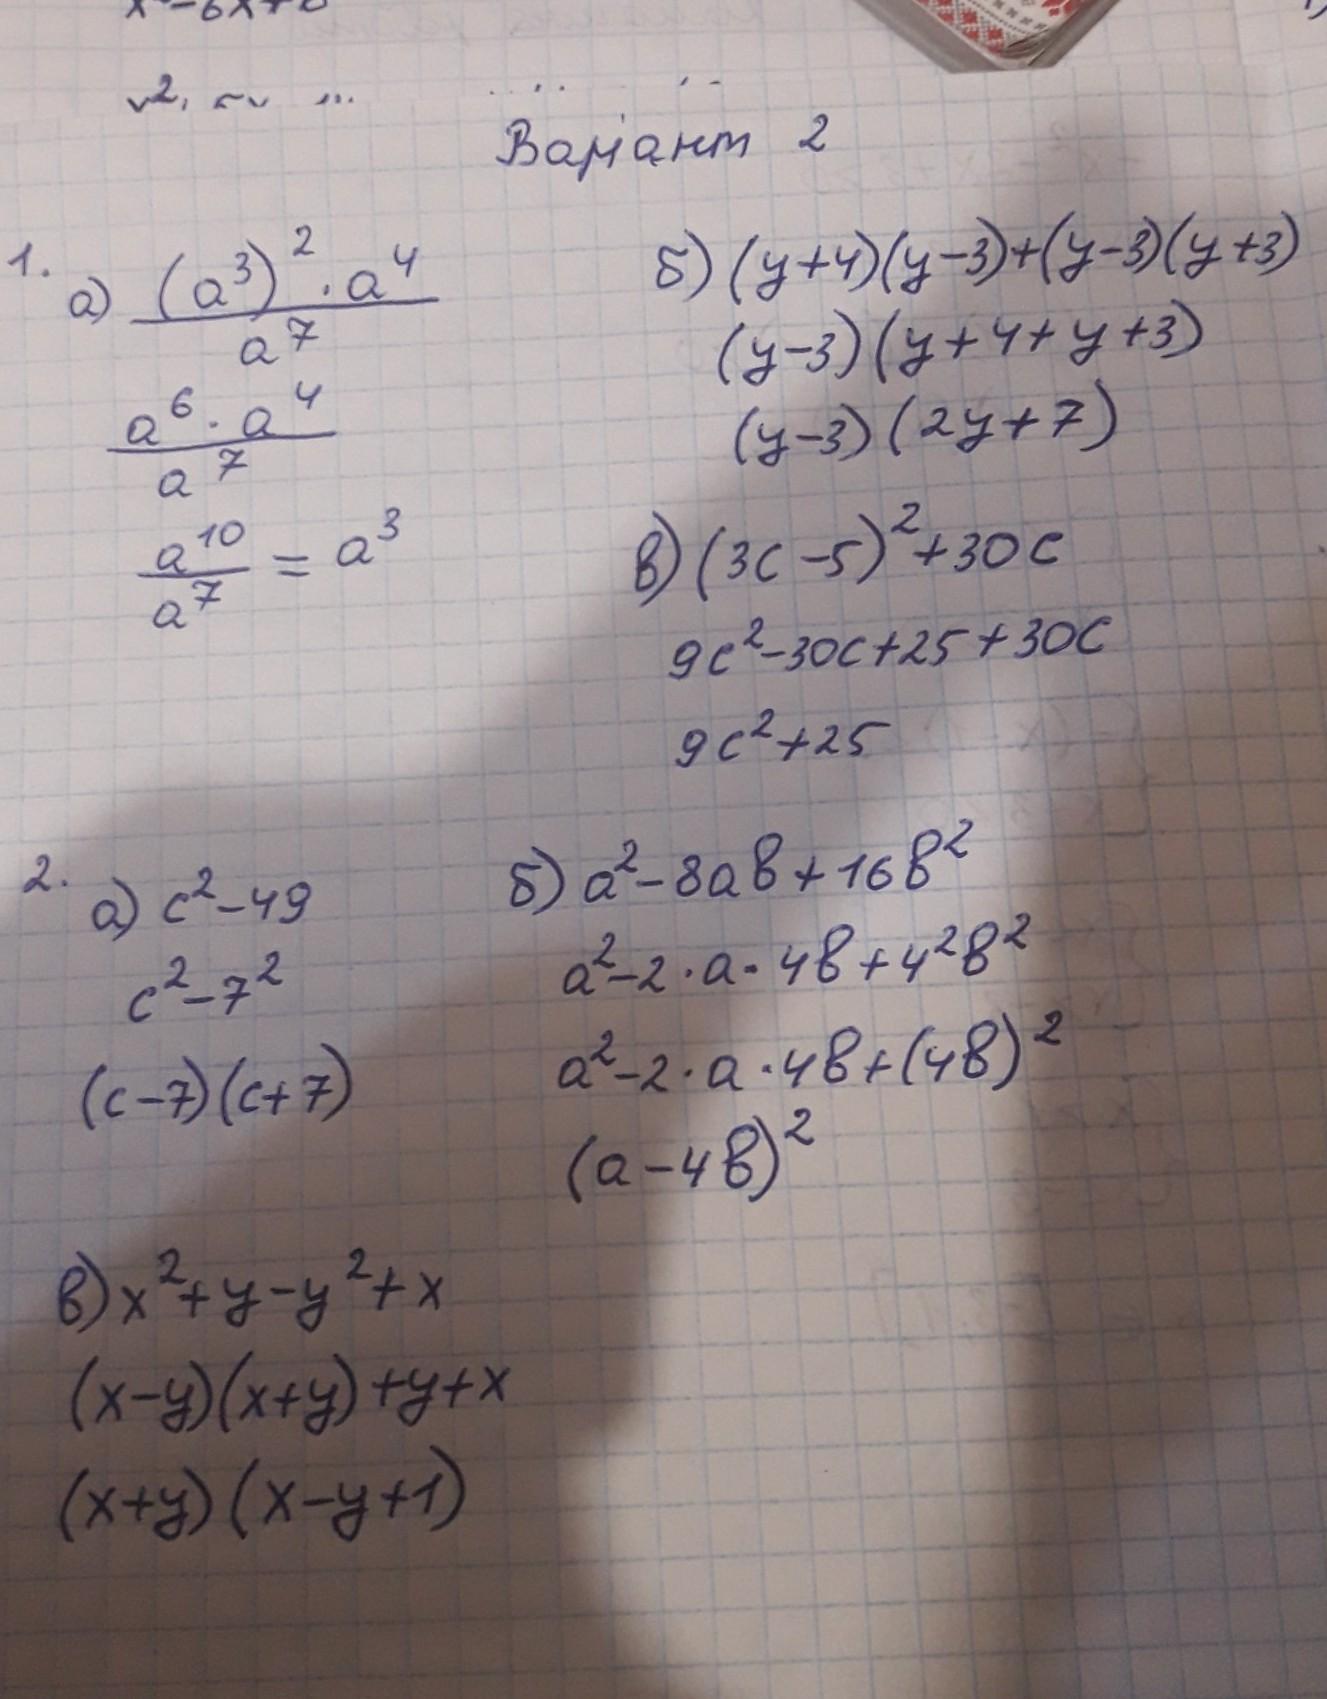 x²-6x+8
Варіант 2
1. а) (a³)² · a⁴ / a⁷
a⁶ · a⁴ / a⁷
a¹⁰ / a⁷ = a³
б) (y+4)(y-3)+(y-3)(y+3)
(y-3)(y+4+y+3)
(y-3)(2y+7)
в) (3c-5)²+30c
9c²-30c+25+30c
9c²+25
2. а) c²-49
c²-7²
(c-7)(c+7)
б) a²-8ab+16b²
a²-2·a·4b+4²b²
a²-2·a·4b+(4b)²
(a-4b)²
в) x²+y-y²+x
(x-y)(x+y)+y+x
(x+y)(x-y+1)